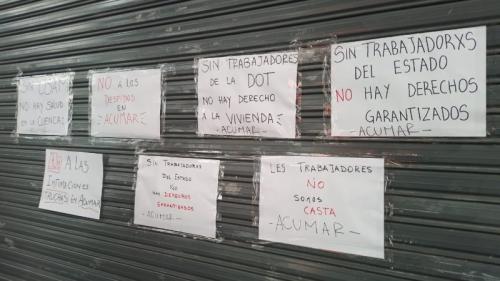 SIN UDAM
NO HAY SALUD
EN LA CUENCA!
NO A LOS
DESPIDOS
EN
ACUMAR!
SIN TRABAJADORES
DE LA DOT
NO HAY DERECHO
A LA VIVIENDA
-ACUMAR-
SIN TRABAJADORXS
DEL ESTADO
NO HAY DERECHOS
GARANTIZADOS
-ACUMAR-
NO A LAS
INTIMACIONES
TRUCHAS EN ACUMAR
SIN TRABAJADORES
DEL ESTADO
NO
HAY DERECHOS
GARANTIZADOS
-ACUMAR-
LES TRABAJADORES
NO
SOMOS
CASTA
-ACUMAR-